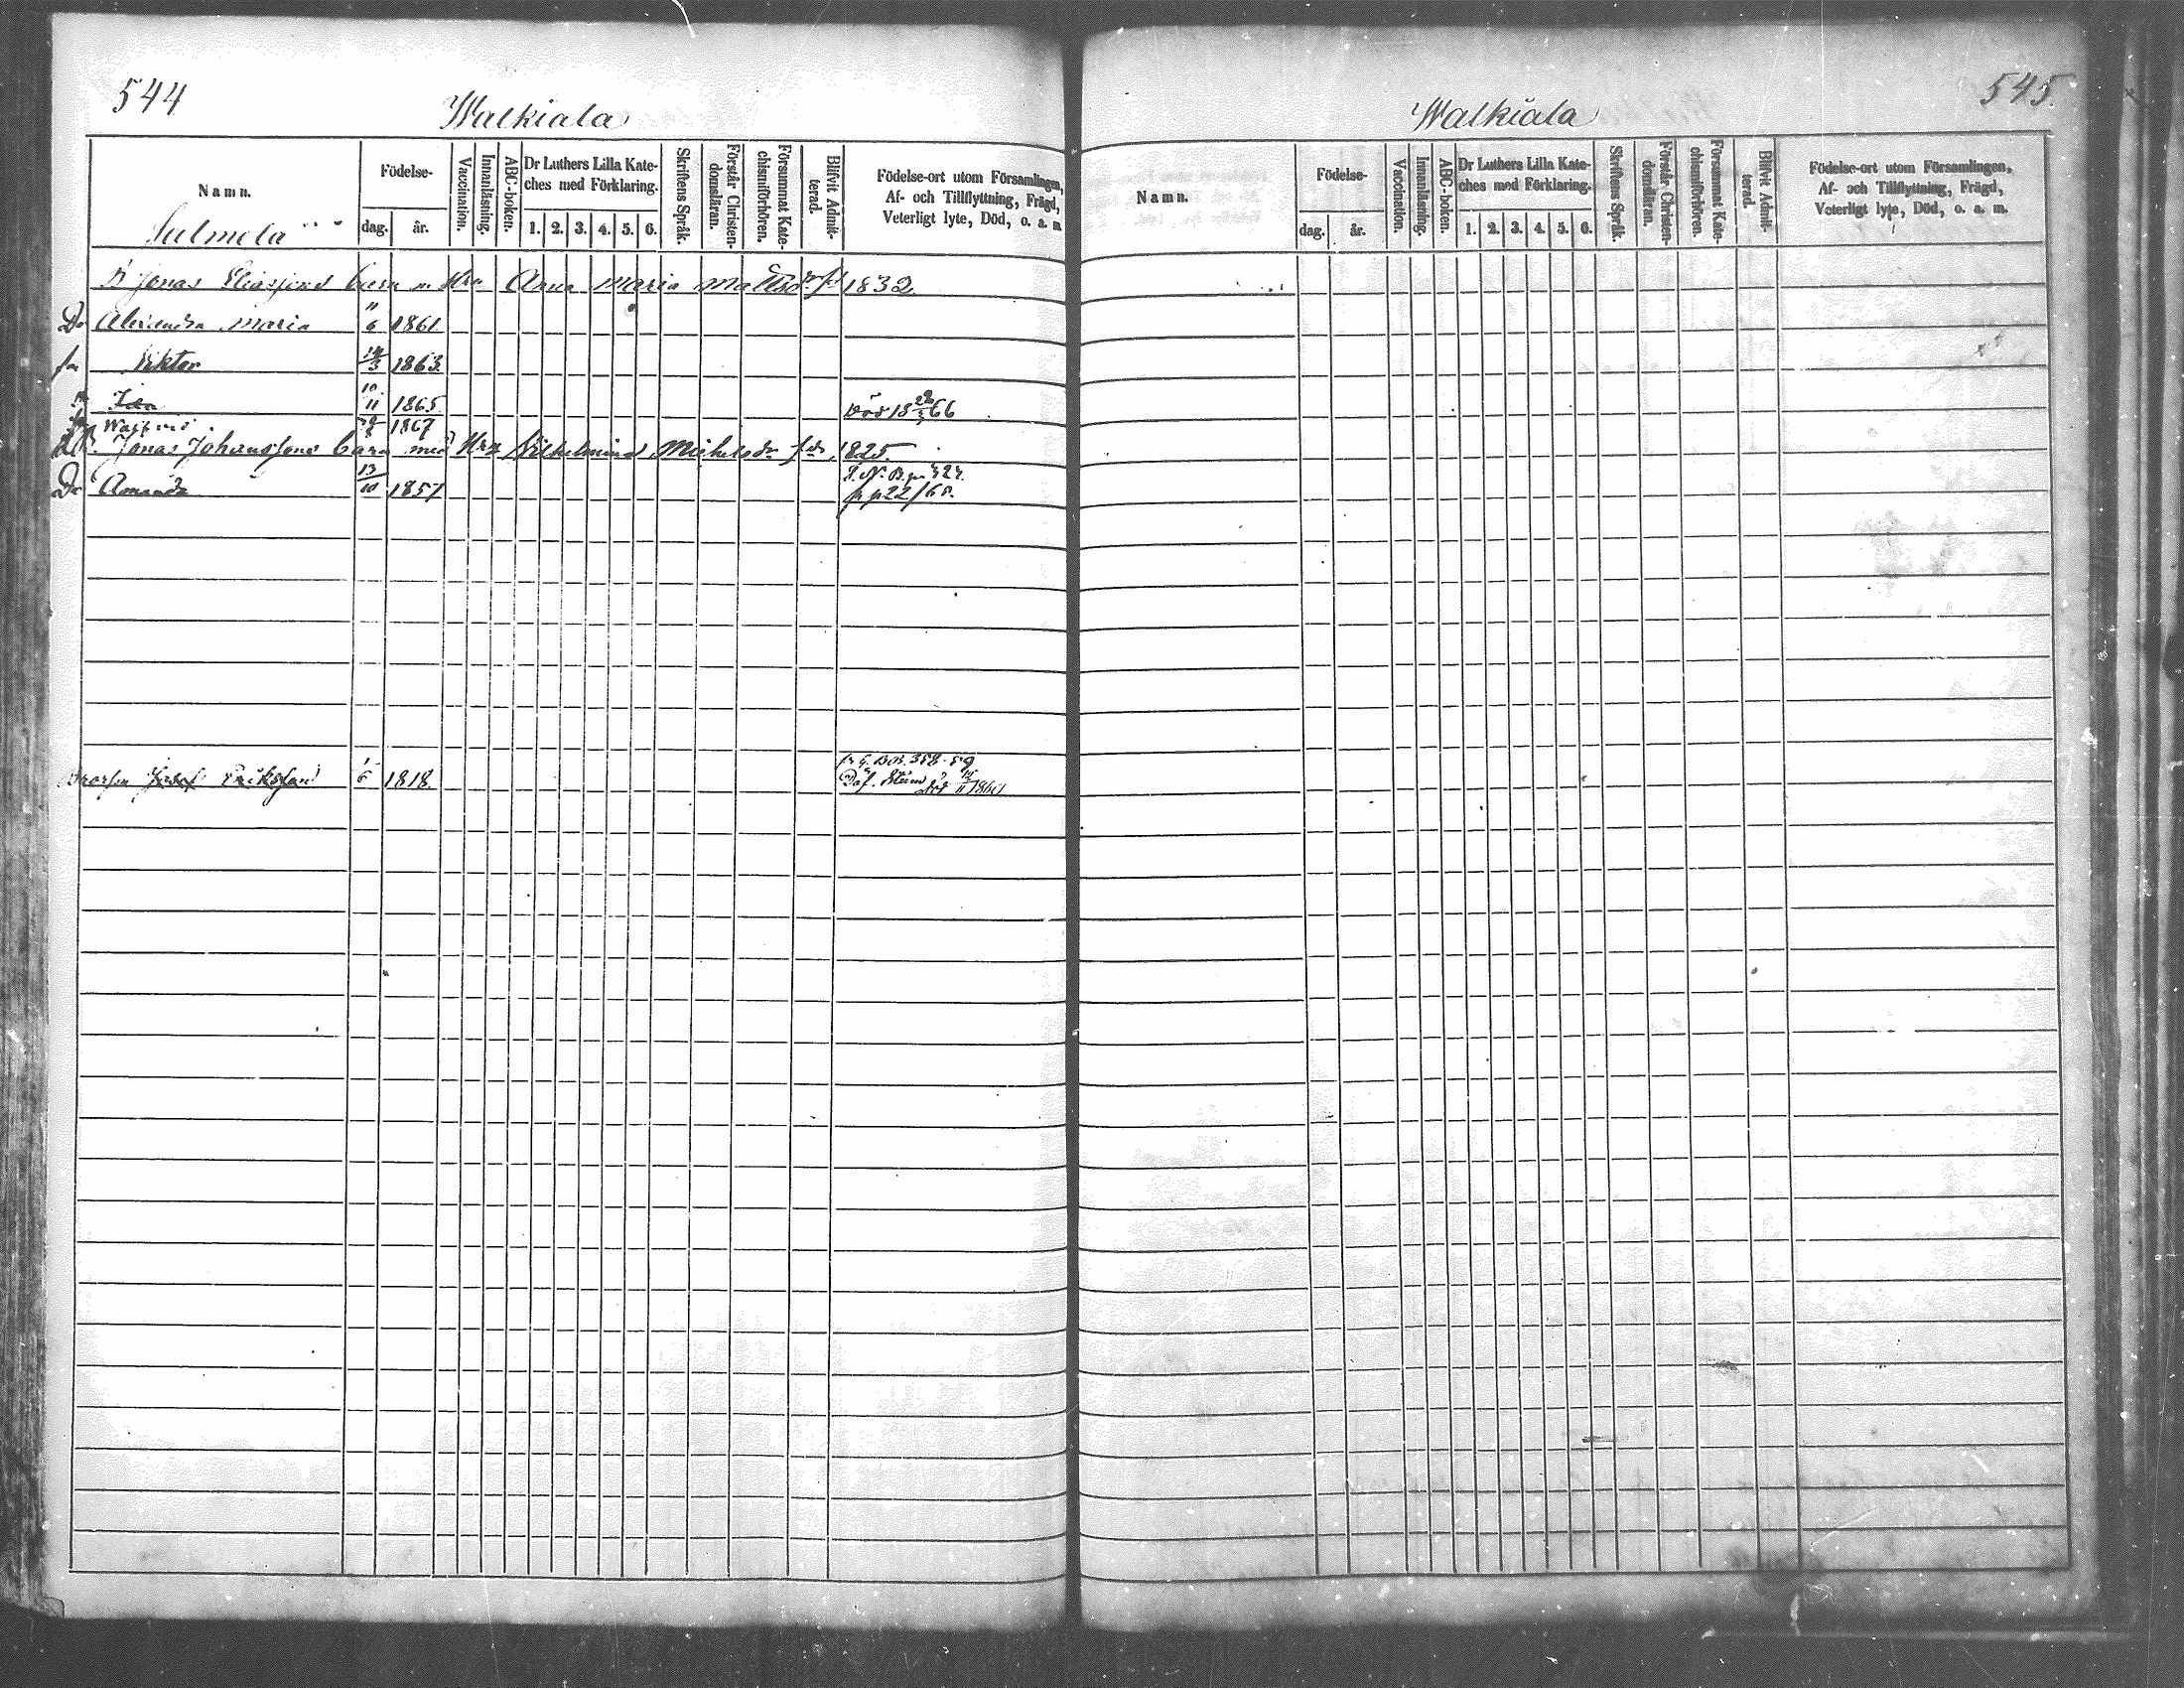 544
Walkiala
Namn.
Födelse-
dag.
år.
Vaccination.
Innanläsning.
ABC-boken.
Dr Luthers Lilla Kate-
ches med Förklaring.
1. 2. 3. 4. 5. 6.
Skriftens Språk.
Förstår Christen-
domsläran.
Försummat Kate-
chismiförhören.
Blifvit Admit-
terad.
Födelse-ort utom Församlingen,
Af- och Tillflyttning, Frägd,
Veterligt lyte, Död, o. a. m.
Sulmela
Jonas Eliassons barn m Hru Anna Maria Mattsdr fd 1832
Dr Alexandra Maria 11/6 1861
Viktor 3 1863
Ida 10/11 1865 död 18 66
1867
Jonas Johanssons barn med Hru Wilhelmina Michelsdr fdr 1825
Dr Amanda 13/10 1857
p p 22/68.
Josef Eriksson 1/6 1818
545.
Walkiala
Namn.
Födelse-
dag.
år.
Vaccination.
Innanläsning.
ABC-boken.
Dr Luthers Lilla Kate-
ches med Förklaring.
1. 2. 3. 4. 5. 6.
Skriftens Språk.
Förstår Christen-
domsläran.
Försummat Kate-
chismiförhören.
Blifvit Admit-
terad.
Födelse-ort utom Församlingen,
Af- och Tillflyttning, Frägd,
Veterligt lyte, Död, o. a. m.